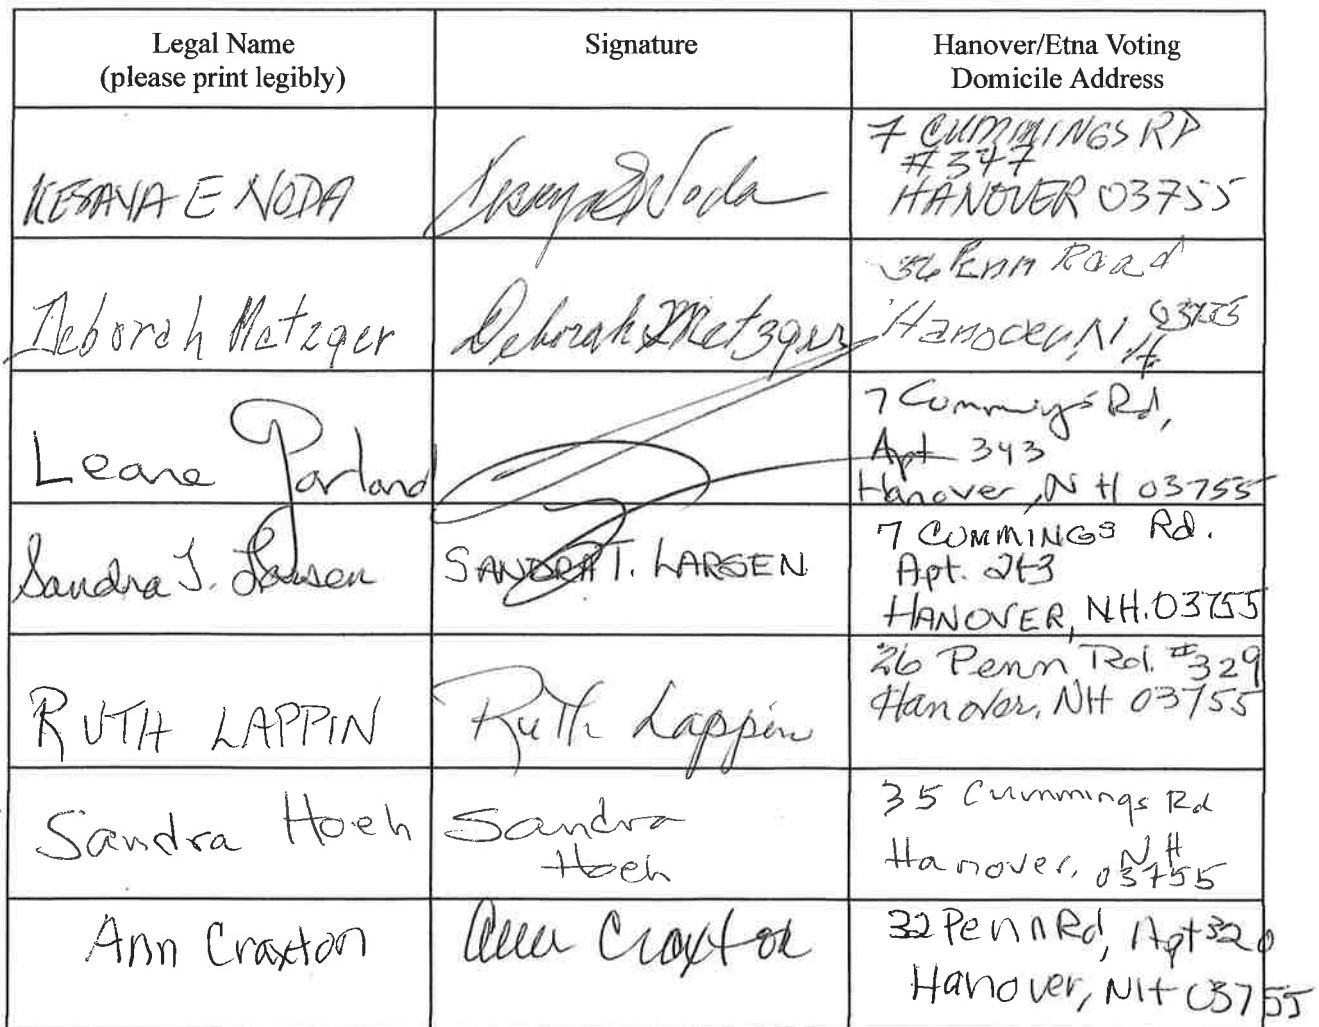 Legal Name
(please print legibly)
Signature
Hanover/Etna Voting
Domicile Address
KESAYA E NODA
Kesaya E Noda
7 CUMMINGS RD
#347
HANOVER 03755
Deborah Metzger
Deborah Metzger
36 Penn Road
Hanover, N H 03755
Leane Parland
7 Cummings Rd,
Apt 343
Hanover, NH 03755
Sandra T. Larsen
SANDRA T. LARSEN
7 CUMMINGS Rd.
Apt. 243
HANOVER, NH. 03755
RUTH LAPPIN
Ruth Lappin
26 Penn Rd. #329
Hanover, NH 03755
Sandra Hoeh
Sandra
Hoeh
35 Cummings Rd
Hanover, NH
03755
Ann Craxton
Ann Craxton
32 Penn Rd, Apt 320
Hanover, NH 03755